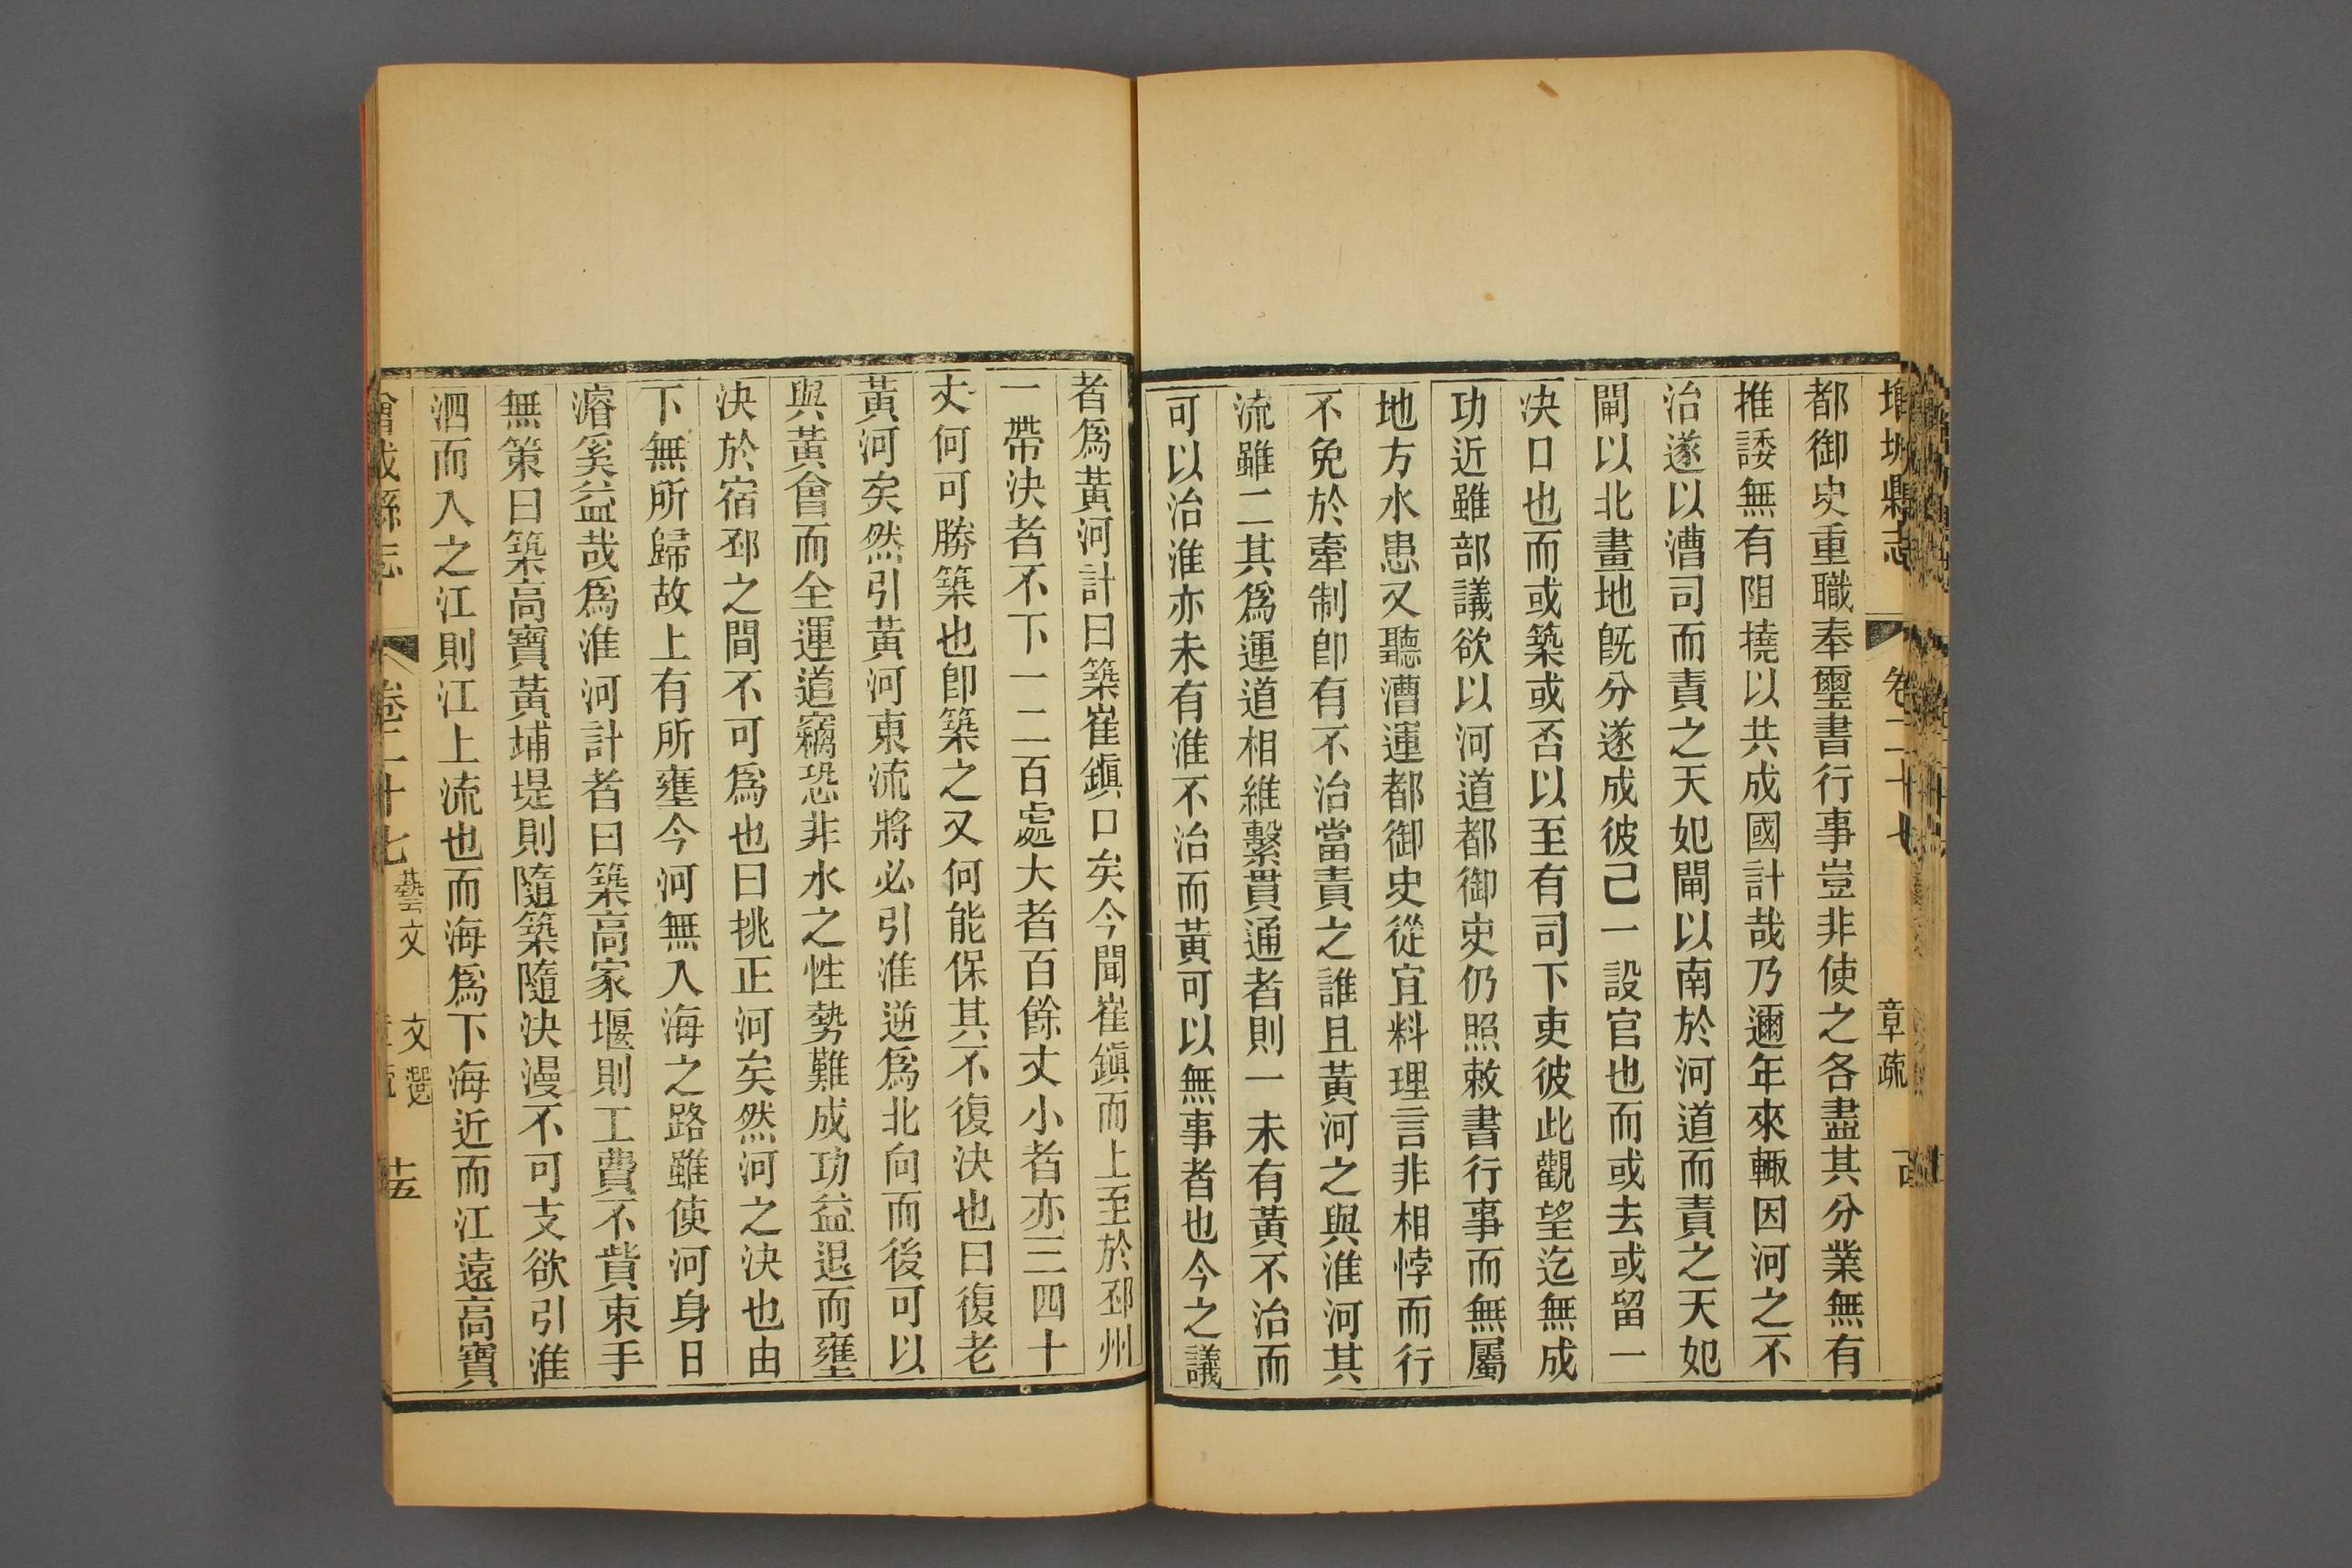 縣志 卷二十七 章疏
都御史重職奉璽書行事豈非使之各盡其分業無有
推諉無有阻撓以共成國計哉乃邇年來輙因河之不
治遂以漕司而責之天妃閘以南於河道而責之天妃
閘以北畫地旣分遂成彼己一設官也而或去或留一
决口也而或築或否以至有司下吏彼此觀望迄無成
功近雖部議欲以河道都御史仍照敕書行事而無屬
地方水患又聽漕運都御史從宜料理言非相悖而行
不免於牽制卽有不治當責之誰且黃河之與淮河其
流雖二其爲運道相維繫貫通者則一未有黃不治而
可以治淮亦未有淮不治而黃可以無事者也今之議
者爲黃河計曰築崔鎭口矣今聞崔鎭而上至於邳州
一帶决者不下一二百處大者百餘丈小者亦三四十
丈何可勝築也卽築之又何能保其不復決也曰復老
黃河矣然引黃河東流將必引淮逆爲北向而後可以
與黃會而全運道竊恐非水之性勢難成功益退而壅
決於宿邳之間不可爲也曰挑正河矣然河之決也由
下無所歸故上有所壅今河無入海之路雖使河身日
濬奚益哉爲淮河計者曰築高家堰則工費不貲束手
無策曰築高寶黃埔堤則隨築隨決漫不可支欲引淮
泗而入之江則江上流也而海爲下海近而江遠高寶
縣志 卷二十七 藝文 文選 十五